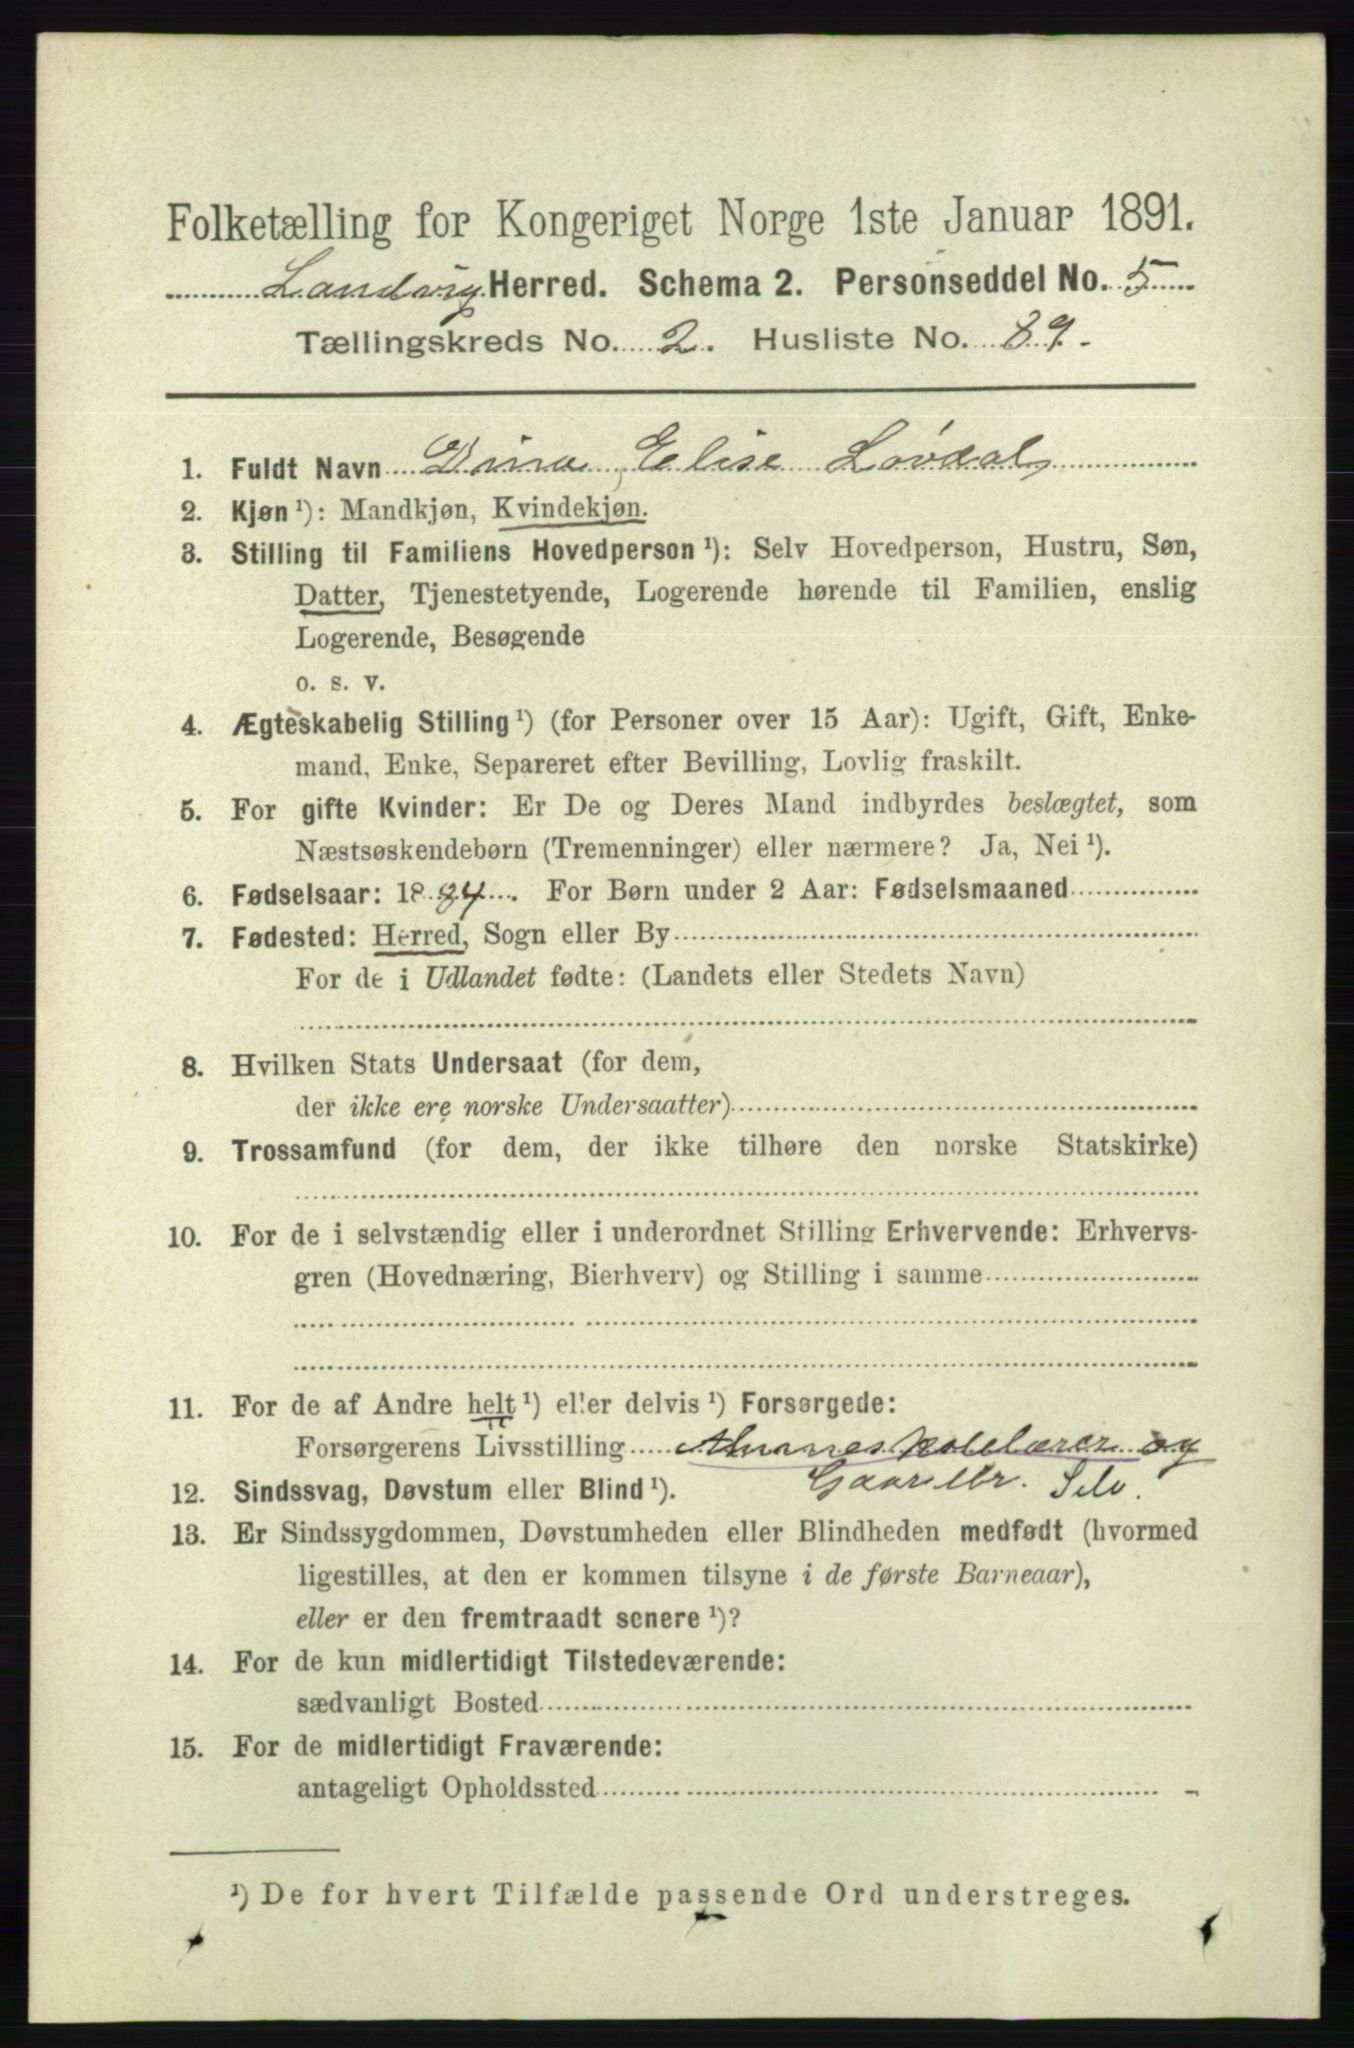 Folketælling for Kongeriget Norge 1ste Januar 1891.
Landvig Herred. Schema 2. Personseddel No. 5
Tællingskreds No. 2. Husliste No. 89.
1. Fuldt Navn Dina Elise Løvdal
2. Kjøn ¹): Mandkjøn, Kvindekjøn.
3. Stilling til Familiens Hovedperson ¹): Selv Hovedperson, Hustru, Søn,
Datter, Tjenestetyende, Logerende hørende til Familien, enslig
Logerende, Besøgende
o. s. v.
4. Ægteskabelig Stilling ¹) (for Personer over 15 Aar): Ugift, Gift, Enke-
mand, Enke, Separeret efter Bevilling, Lovlig fraskilt.
5. For gifte Kvinder: Er De og Deres Mand indbyrdes beslægtet, som
Næstsøskendebørn (Tremenninger) eller nærmere? Ja, Nei ¹).
6. Fødselsaar: 1884. For Børn under 2 Aar: Fødselsmaaned
7. Fødested: Herred, Sogn eller By
For de i Udlandet fødte: (Landets eller Stedets Navn)
8. Hvilken Stats Undersaat (for dem,
der ikke ere norske Undersaatter)
9. Trossamfund (for dem, der ikke tilhøre den norske Statskirke)
10. For de i selvstændig eller i underordnet Stilling Erhvervende: Erhvervs-
gren (Hovednæring, Bierhverv) og Stilling i samme
11. For de af Andre helt ¹) eller delvis ¹) Forsørgede:
Forsørgerens Livsstilling Almueskolelærer og
Gaardbr. Selv.
12. Sindssvag, Døvstum eller Blind ¹).
13. Er Sindssygdommen, Døvstumheden eller Blindheden medfødt (hvormed
ligestilles, at den er kommen tilsyne i de første Barneaar),
eller er den fremtraadt senere ¹)?
14. For de kun midlertidigt Tilstedeværende:
sædvanligt Bosted
15. For de midlertidigt Fraværende:
antageligt Opholdssted
¹) De for hvert Tilfælde passende Ord understreges.